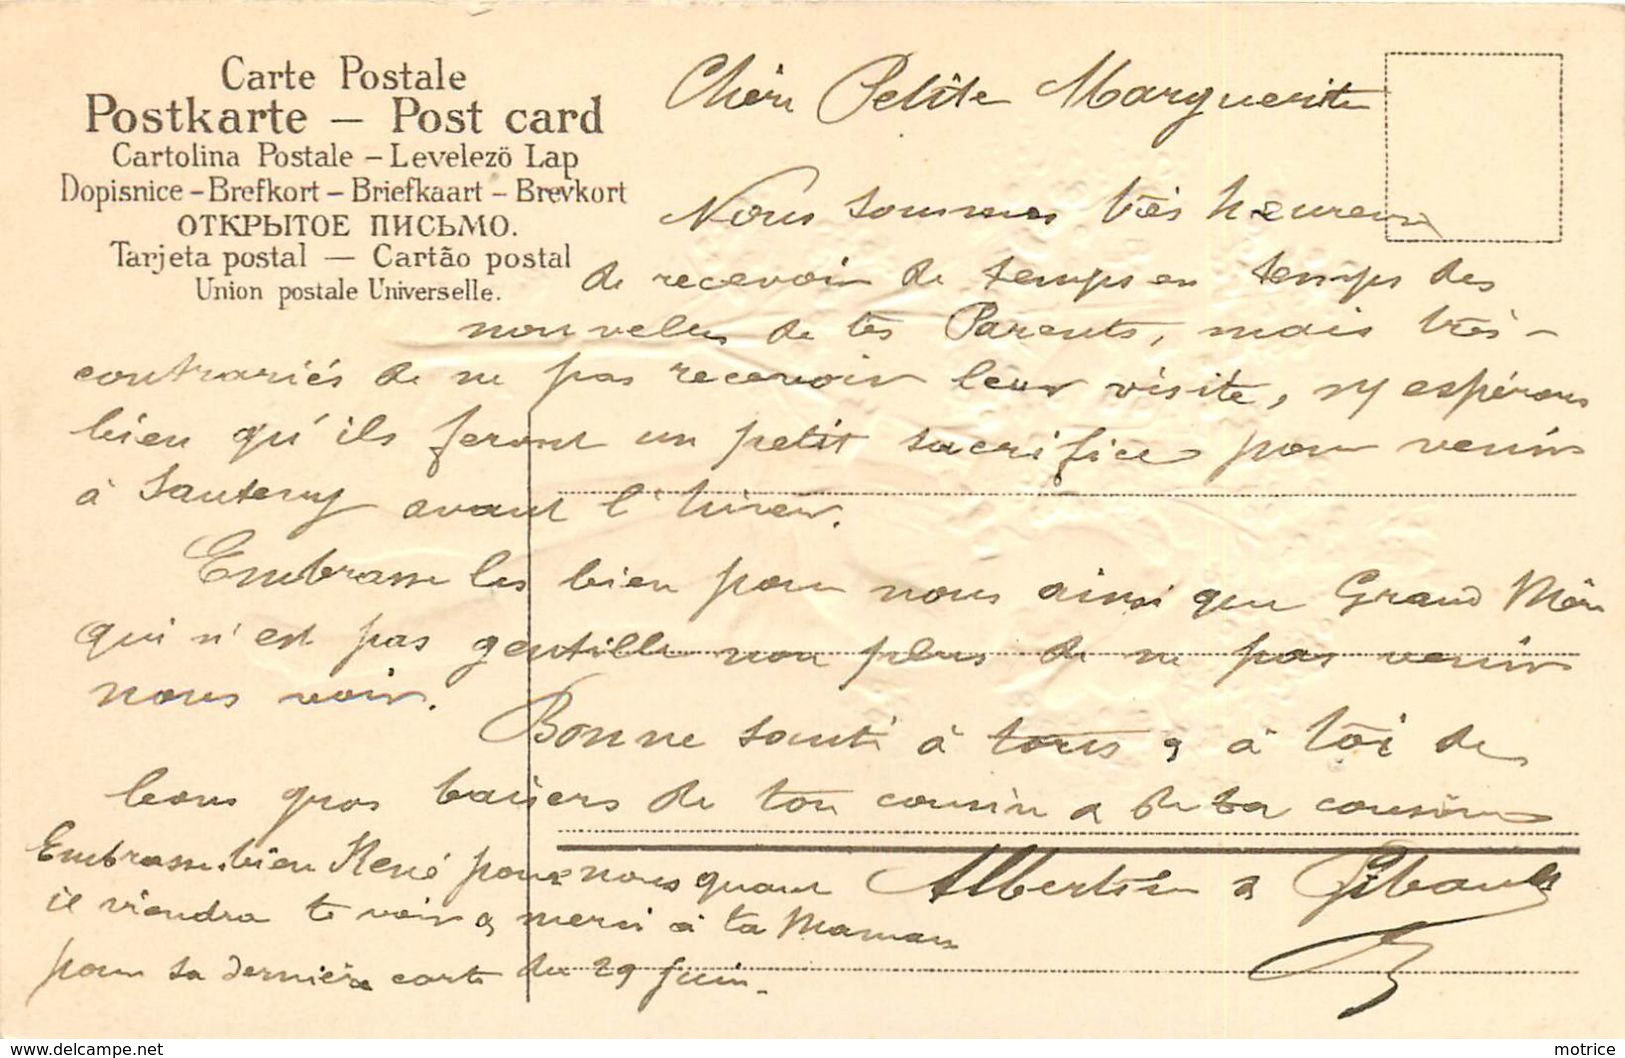 Carte Postale
Postkarte — Post card
Cartolina Postale – Levelezö Lap
Dopisnice – Brefkort – Briefkaart – Brevkort
ОТКРЫТОЕ ПИСЬМО.
Tarjeta postal — Cartão postal
Union postale Universelle.
Chère Petite Marguerite
Nous sommes très heureux
de recevoir de temps en temps des
nouvelles de tes Parents, mais très
contrariés de ne pas recevoir leur visite, espérons
bien qu'ils feront un petit sacrifice pour venir
à avant l'hiver.
Embrasse les bien pour nous ainsi que Grand Mère
qui n'est pas gentille non plus de ne pas venir
nous voir.
Bonne santé à tous & à toi de
bons gros baisers de ton cousin & de ta cousine
Albertine & Gibault
Embrasse bien René pour nous quand
il viendra te voir & merci à ta Maman
pour sa dernière carte du 29 Juin.
www.delcampe.net
motrice